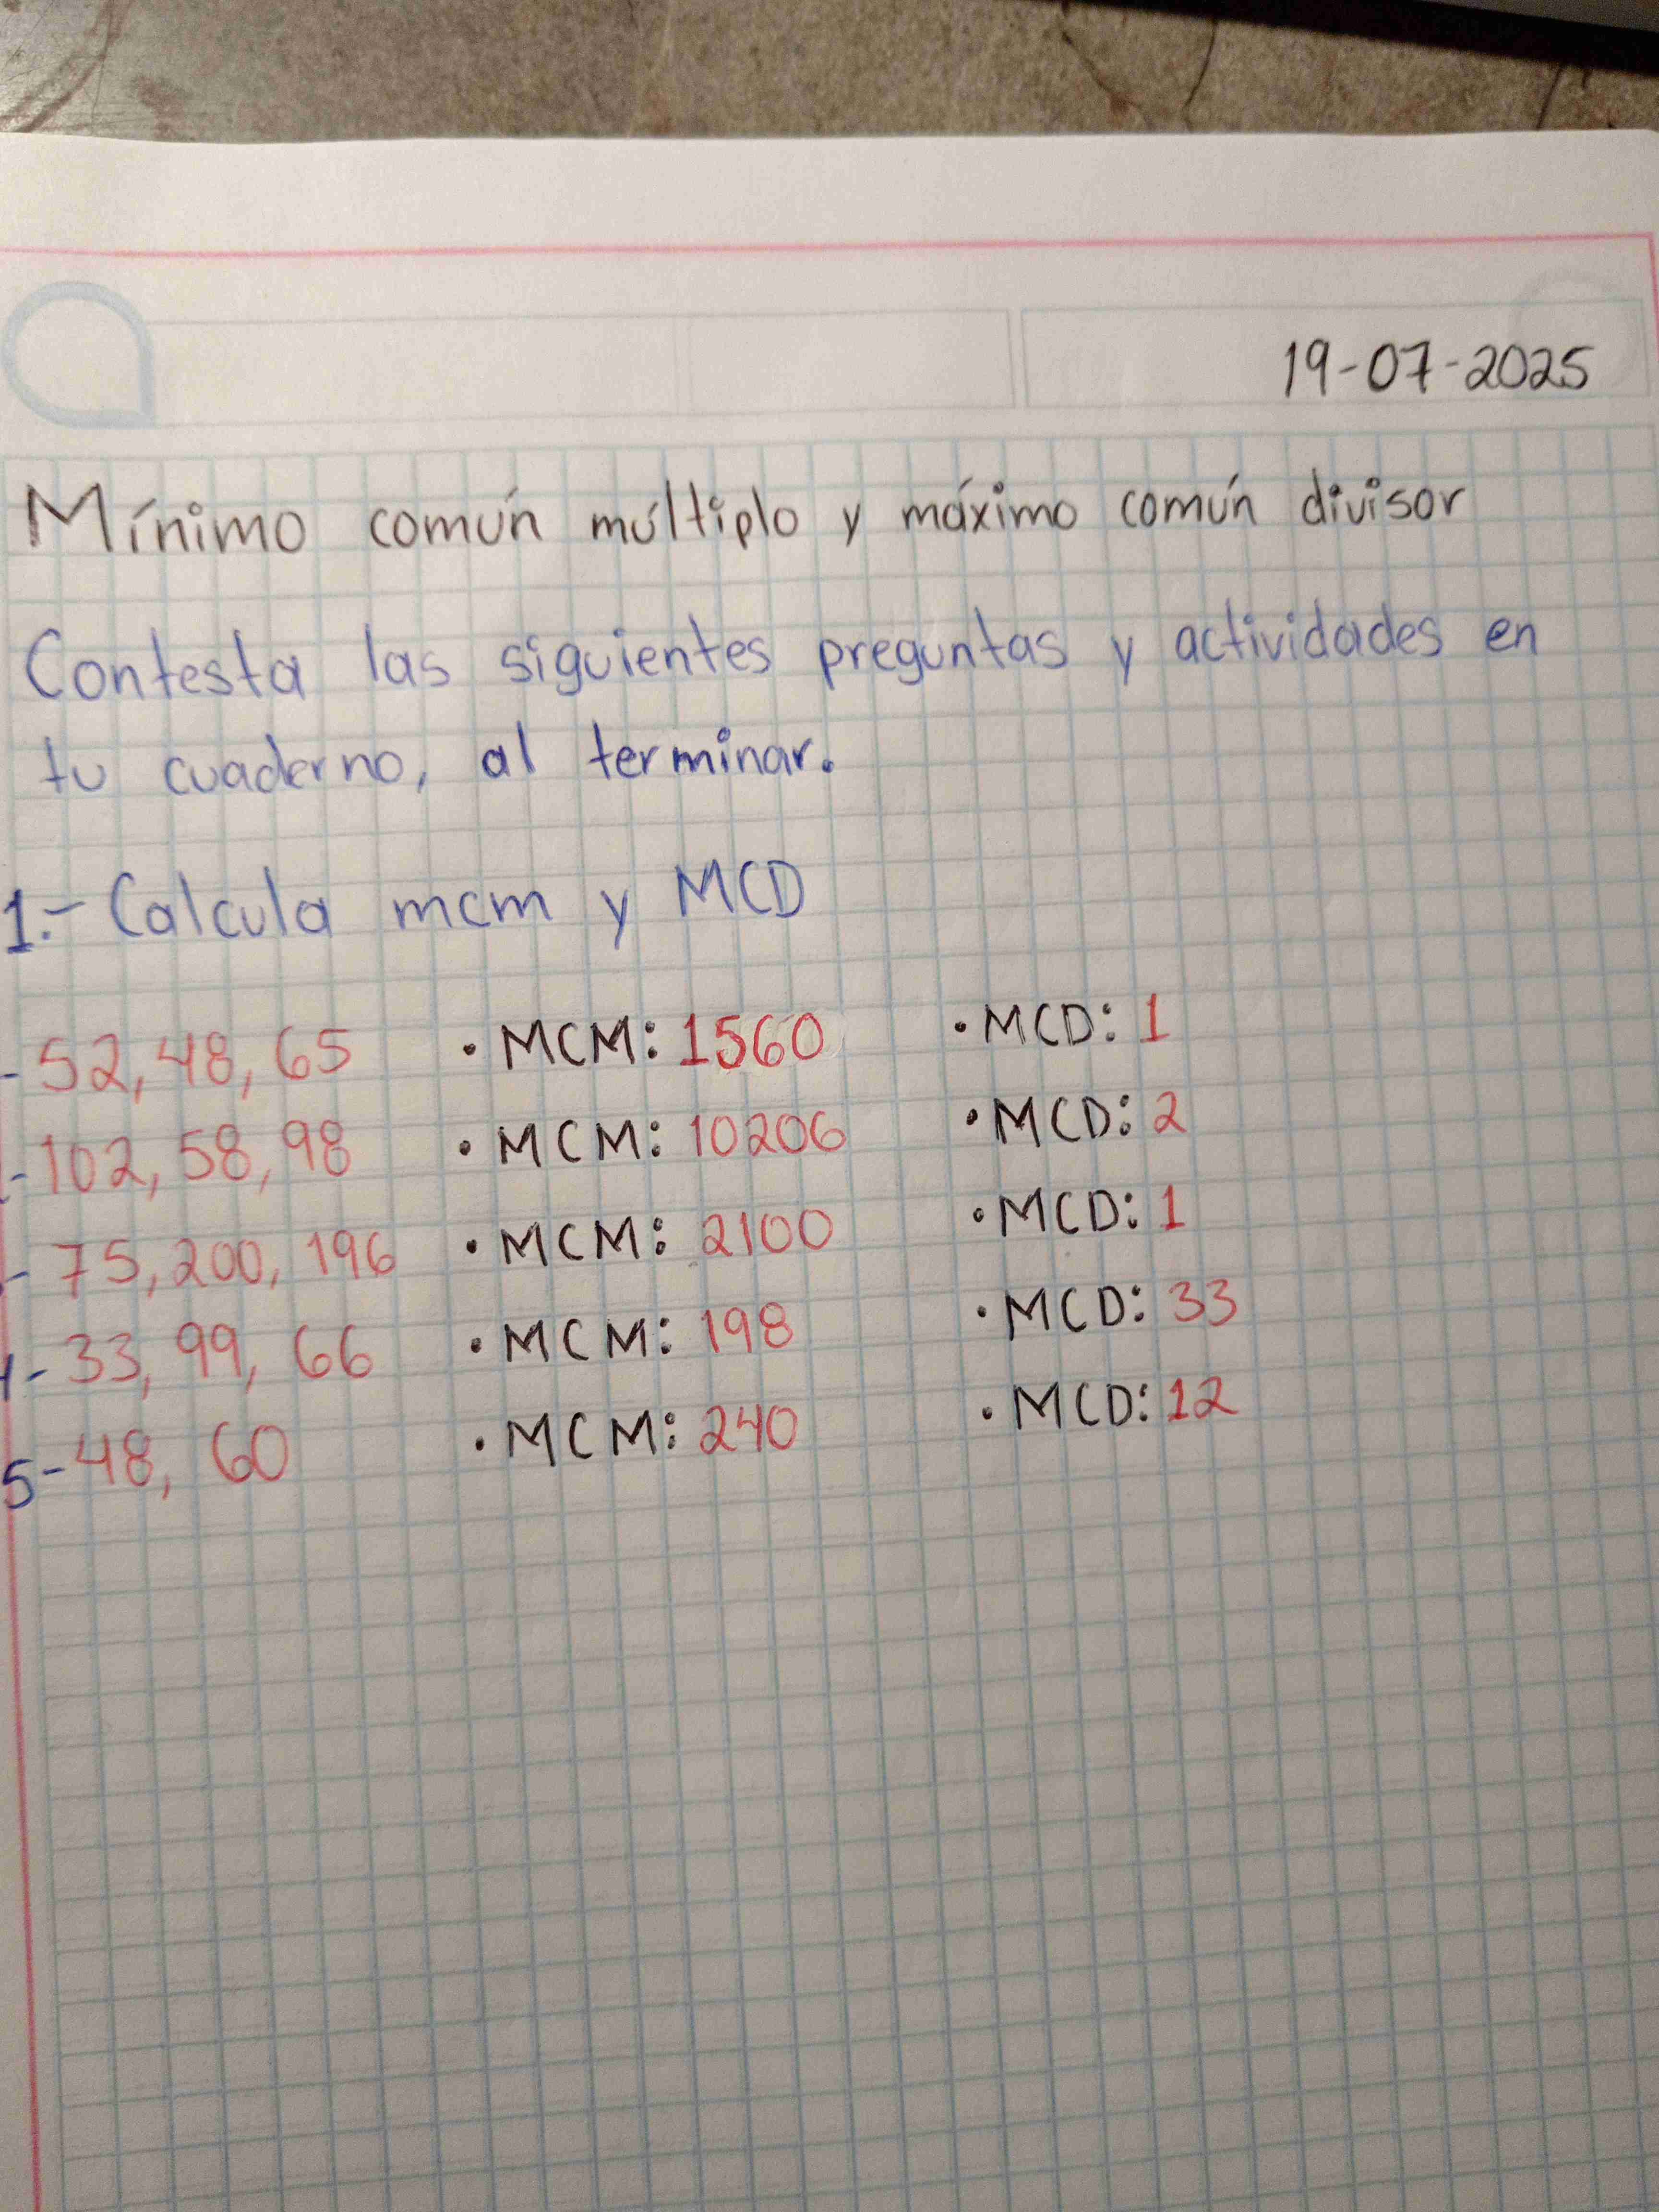 19-07-2025
Mínimo común múltiplo y máximo común divisor
Contesta las siguientes preguntas y actividades en
tu cuaderno, al terminar.
1.- Calcula mcm y MCD
- 52, 48, 65 • MCM: 1560 • MCD: 1
- 102, 58, 98 • MCM: 10206 • MCD: 2
- 75, 200, 196 • MCM: 2100 • MCD: 1
- 33, 99, 66 • MCM: 198 • MCD: 33
5- 48, 60 • MCM: 240 • MCD: 12